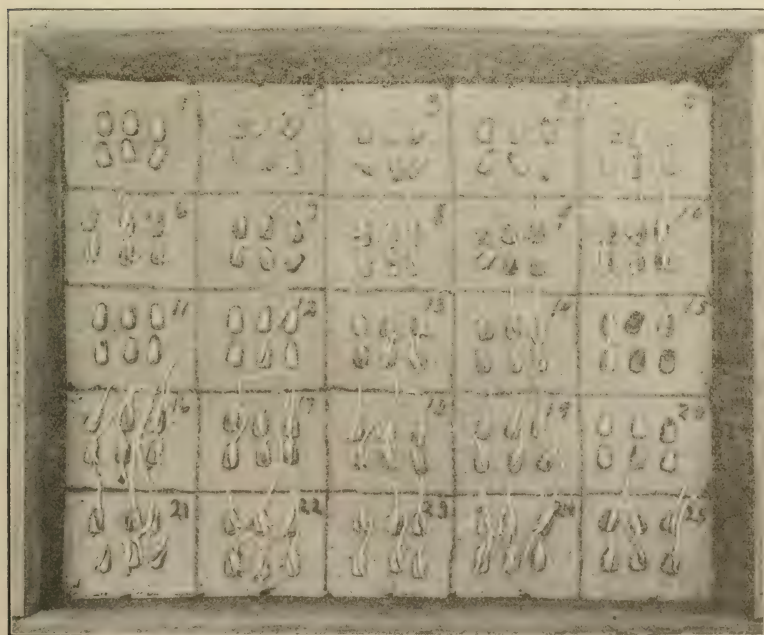 1
6 7 8 9 10
11 12 13 14 15
16 17 18 19 20
21 22 23 24 25